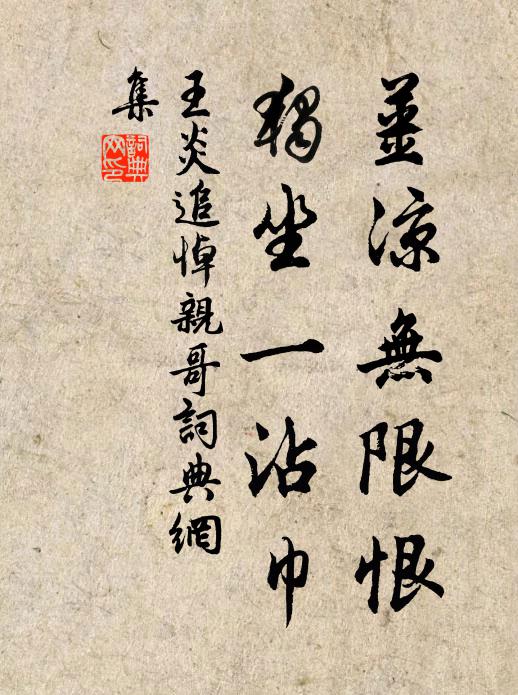 萋涼無限恨
獨坐一沾巾
王炎追悼親哥詞典網
集
詞典
网印